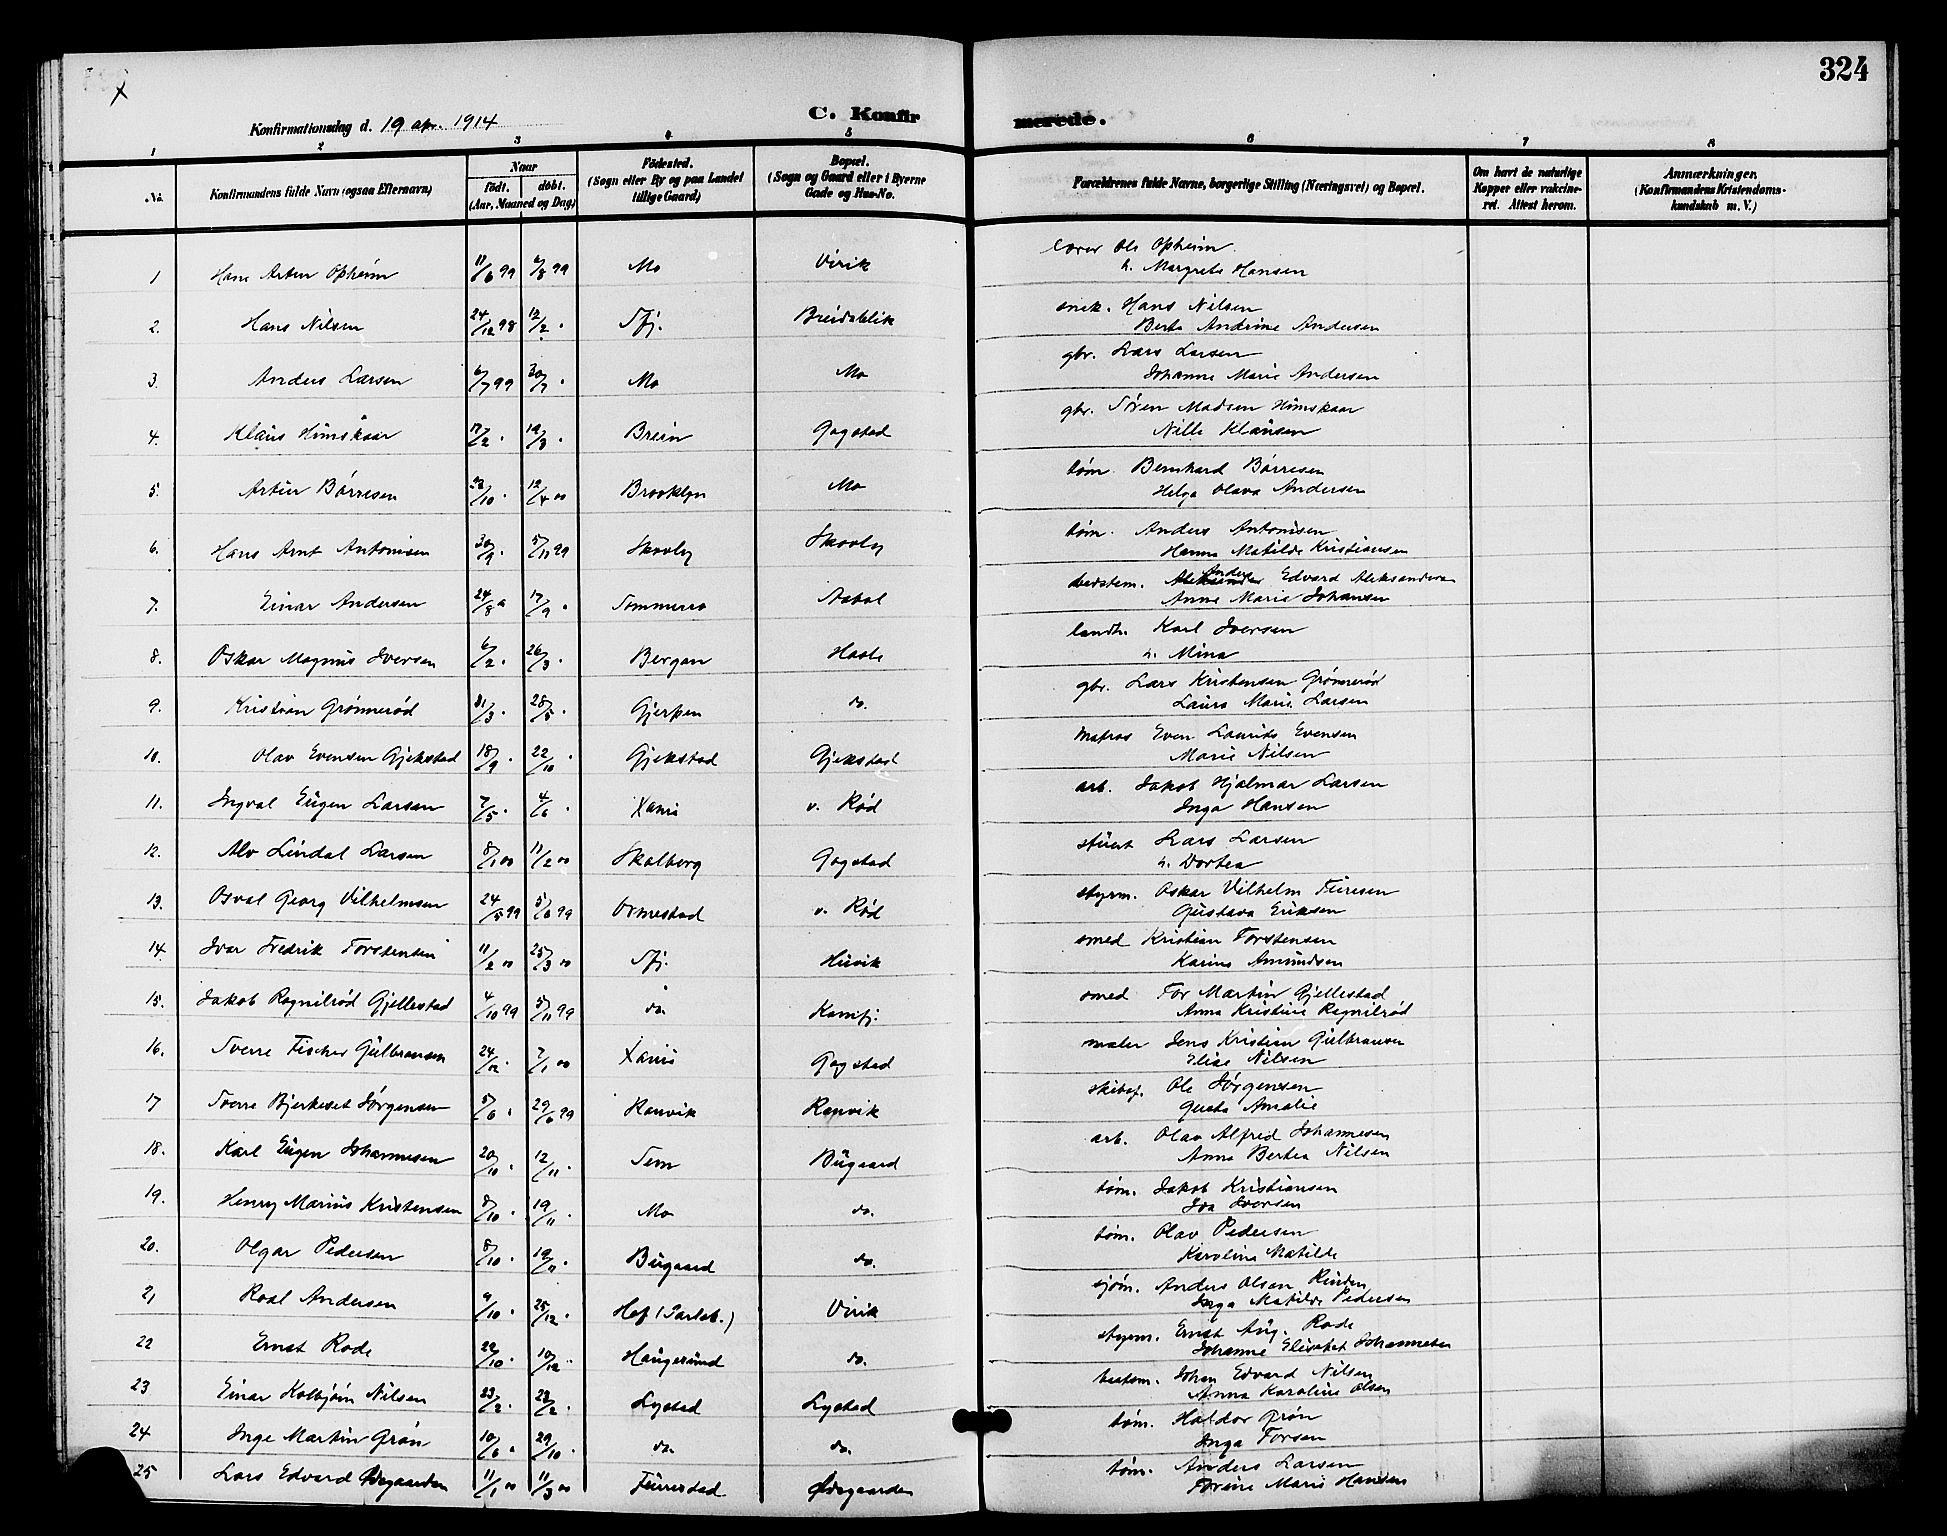 324
Konfirmationsdag d. 19 apr. 1914
C. Konfirmerede.
1 2 3 4 5 6 7 8
No. Konfirmandens fulde Navn (ogsaa Efternavn) Naar født. døbt. (Aar, Maaned og Dag) Fødested. (Sogn eller By og paa Landet tillige Gaard) Bopæl. (Sogn og Gaard eller i Byerne Gade og Hus-No. Forældrenes fulde Navne, borgerlige Stilling (Næringsvei) og Bopæl. Om havt de naturlige Kopper eller vakcineret. Attest herom. Anmærkninger. (Konfirmandens Kristendomskundskab m. V.)
1 Hans Artur Opheim 11/6 99 6/8 99 Mo Virik lærer Ole Opheim
h. Margrete Hansen
2. Hans Nilsen 24/12 98 12/2 " Sfj. Breidablik snek. Hans Nilsen
Berte Andrine Andersen
3. Anders Larsen 6/7 99 30/7 " Mo Mo gbr. Lars Larsen
Johanne Marie Andersen
4. Klaus Himskaar 17/2 " 19/3 " Brein Gogstad gbr. Søren Madsen Himskaar
Nille Klausen
5. Artur Børresen 22/10 " 12/4 00 Brooklyn Mo tøm. Bernhard Børresen
Helga Olava Andersen
6. Hans Arnt Antonisen 30/9 " 5/11 99 Skovly Skovly tøm. Anders Antonisen
Hanna Matilde Kristiansen
7. Einar Andersen 24/8 " 17/9 " Sommerro Aabol Anders Edvard Aleksandersen
Anne Marie Johansen
8. Oskar Magnus Iversen 6/2 " 26/3 " Bergan Hasle landh. Karl Iversen
h. Mina
9. Kristian Grønnerød 31/3 " 28/5 " Gjerpen do. gbr. Lars Kristensen Grønnerød
Laura Marie Larsen
10. Olav Evensen Gjekstad 18/9 " 22/10 " Gjekstad Gjekstad matros Even Laurits Evensen
Marie Nilsen
11. Ingval Eugen Larsen 7/5 " 4/6 " Xania v. Rød arb. Jakob Hjalmar Larsen
Inga Hansen
12. Alv Lindal Larsen 8/1 00 11/2 00 Skalberg Gogstad stuert Lars Larsen
h. Dortea
13. Osval Georg Vilhelmsen 24/5 99 5/8 99 Ormestad v. Rød styrm. Oskar Vilhelm Furesen
Gustava Eriksen
14. Ivar Fredrik Torstensen 11/2 00 25/3 00 Sfj. Huvik smed Kristian Torstensen
Karine Amundsen
15. Jakob Ragnilrød Gjellestad 4/10 99 5/11 99 do. Kamfj. smed Tor Martin Gjellestad
Anna Kristine Ragnilrød
16. Sverre Fischer Gulbransen 24/12 " 7/1 00 Xania Gogstad maler Jens Kristian Gulbransen
Elise Nilsen
17 Sverre Bjerkeset Jørgensen 5/6 " 29/6 99 Ranvik Ranvik skibsf. Ole Jørgensen
Gusta Amalie
18. Karl Eugen Johannesen 20/10 " 12/11 " Sem Bugaard arb. Olav Alfred Johannesen
Anna Bertea Nilsen
19. Henry Marius Kristensen 8/10 " 19/11 " Mo do. tøm. Jakob Kristiansen
Iva Iversen
20. Olgar Pedersen 8/10 " 19/11 " Bugaard do. tøm. Olav Pedersen
Karoline Matilde
21 Roal Andersen 9/10 " 25/12 " Hof (Jarlsb.) Virik sjøm. Anders Olsen Rinden
Inga Matilde Pedersen
22 Ernst Rode 22/10 " 10/12 " Haugesund do. styrm. Ernst Aug. Rode
Johanne Elisabet Johannesen
23 Einar Kolbjørn Nilsen 23/2 " 22/2 " Lystad Lystad Johan Edvard Nilsen
Anna Karoline Olsen
24 Inge Martin Grøn 10/6 " 29/10 " do. do. tøm. Haldor Grøn
Inga Torsen
25 Lars Edvard Ødegaarden 11/1 00 11/3 00 Furrestad Ødegaarden tøm. Anders Larsen
Torine Marie Hansen